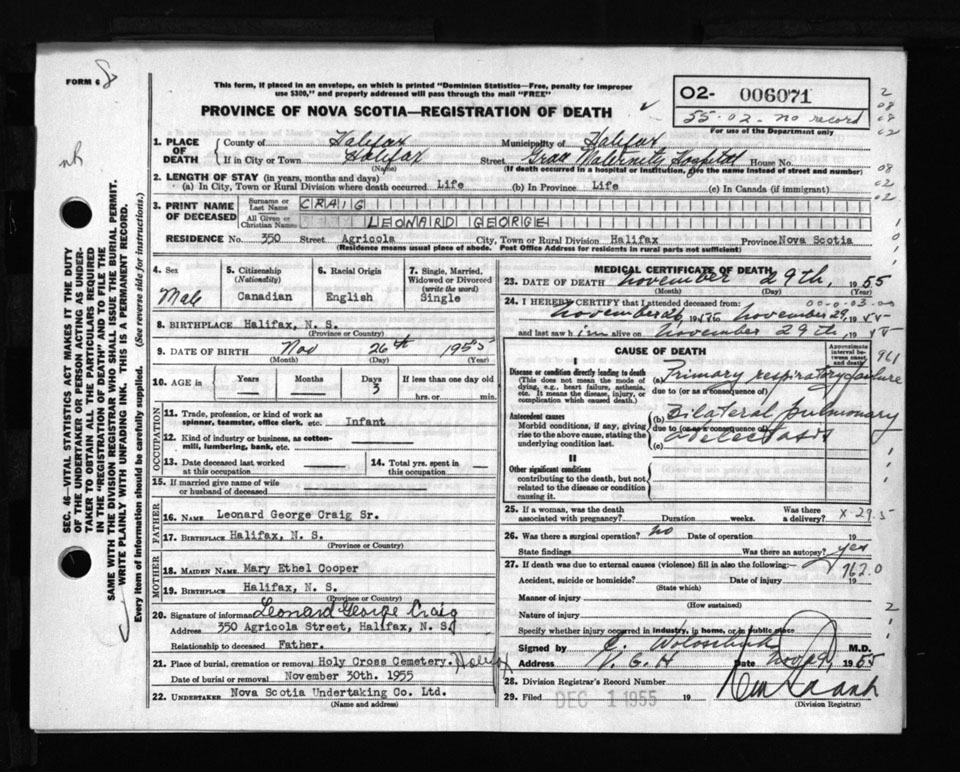 FORM 6 8
This form, if placed in an envelope, on which is printed "Dominion Statistics—Free, penalty for improper
use $300," and properly addressed will pass through the mail "FREE"
PROVINCE OF NOVA SCOTIA—REGISTRATION OF DEATH
O2- 006071
55-02- no record
For use of the Department only
2
08
08
02
08
02
02
nb
SEC. 46—VITAL STATISTICS ACT MAKES IT THE DUTY
OF THE UNDERTAKER OR PERSON ACTING AS UNDER-
TAKER TO OBTAIN ALL THE PARTICULARS REQUIRED
IN THE "REGISTRATION OF DEATH" AND TO FILE THE
SAME WITH THE DIVISION REGISTRAR WHO SHALL ISSUE THE BURIAL PERMIT.
WRITE PLAINLY WITH UNFADING INK. THIS IS A PERMANENT RECORD.
Every item of information should be carefully supplied. (See reverse side for instructions.)
1. PLACE OF DEATH
County of Halifax Municipality of Halifax
If in City or Town Halifax Street Grace Maternity Hospital House No.
(Name) (If death occurred in a hospital or institution, give the name instead of street and number)
2. LENGTH OF STAY (in years, months and days)
(a) In City, Town or Rural Division where death occurred Life (b) In Province Life (c) In Canada (if immigrant)
3. PRINT NAME OF DECEASED
Surname or Last Name CRAIG
All Given or Christian Names LEONARD GEORGE
RESIDENCE No. 350 Street Agricola City, Town or Rural Division Halifax Province Nova Scotia
(Residence means usual place of abode. Post Office Address for residents in rural parts not sufficient)
4. Sex
Male
5. Citizenship
(Nationality)
Canadian
6. Racial Origin
English
7. Single, Married,
Widowed or Divorced
(write the word)
Single
8. BIRTHPLACE Halifax, N. S.
(Province or Country)
9. DATE OF BIRTH Nov 26th 1955
(Month) (Day) (Year)
10. AGE in Years Months Days 3 If less than one day old
hrs. or min.
OCCUPATION
11. Trade, profession, or kind of work as
spinner, teamster, office clerk, etc. Infant
12. Kind of industry or business, as cotton-
mill, lumbering, bank, etc.
13. Date deceased last worked
at this occupation
14. Total yrs. spent in
this occupation
15. If married give name of wife
or husband of deceased
FATHER
16. NAME Leonard George Craig Sr.
17. BIRTHPLACE Halifax, N. S.
(Province or Country)
MOTHER
18. MAIDEN NAME Mary Ethel Cooper
19. BIRTHPLACE Halifax, N. S.
(Province or Country)
20. Signature of informant Leonard George Craig
Address 350 Agricola Street, Halifax, N. S.
Relationship to deceased Father.
21. Place of burial, cremation or removal Holy Cross Cemetery. Halifax
Date of burial or removal November 30th. 1955
22. UNDERTAKER Nova Scotia Undertaking Co. Ltd.
(Name and address)
MEDICAL CERTIFICATE OF DEATH
23. DATE OF DEATH November 29th, 1955
(Month) (Day) (Year)
24. I HEREBY CERTIFY that I attended deceased from:
00-0-03-00
November 26 1955 November 29 1955
and last saw him alive on November 29th, 1955
CAUSE OF DEATH
Approximate
interval between
onset and
death
961
I
Disease or condition directly leading to death
(This does not mean the mode of
dying, e.g., heart failure, asthenia,
etc. It means the disease, injury, or
complication which caused death.)
(a) Primary respiratory failure
due to (or as a consequence of)
Antecedent causes
Morbid conditions, if any, giving
rise to the above cause, stating the
underlying condition last.
(b) Bilateral pulmonary
due to (or as a consequence of)
atelectasis
(c)
II
Other significant conditions
contributing to the death, but not
related to the disease or condition
causing it.
25. If a woman, was the death
associated with pregnancy? Duration weeks. Was there
a delivery?
X-29.5
26. Was there a surgical operation? no Date of operation 19
State findings Was there an autopsy? yes
27. If death was due to external causes (violence) fill in also the following:
762.0
Accident, suicide or homicide? Date of injury 19
(State which)
Manner of injury
(How sustained)
Nature of injury
Specify whether injury occurred in industry, in home, or in public place
Signed by C. M.D.
Address V. G. H Date Nov 29 1955
28. Division Registrar's Record Number
29. Filed DEC 1 1955 19
(Division Registrar)